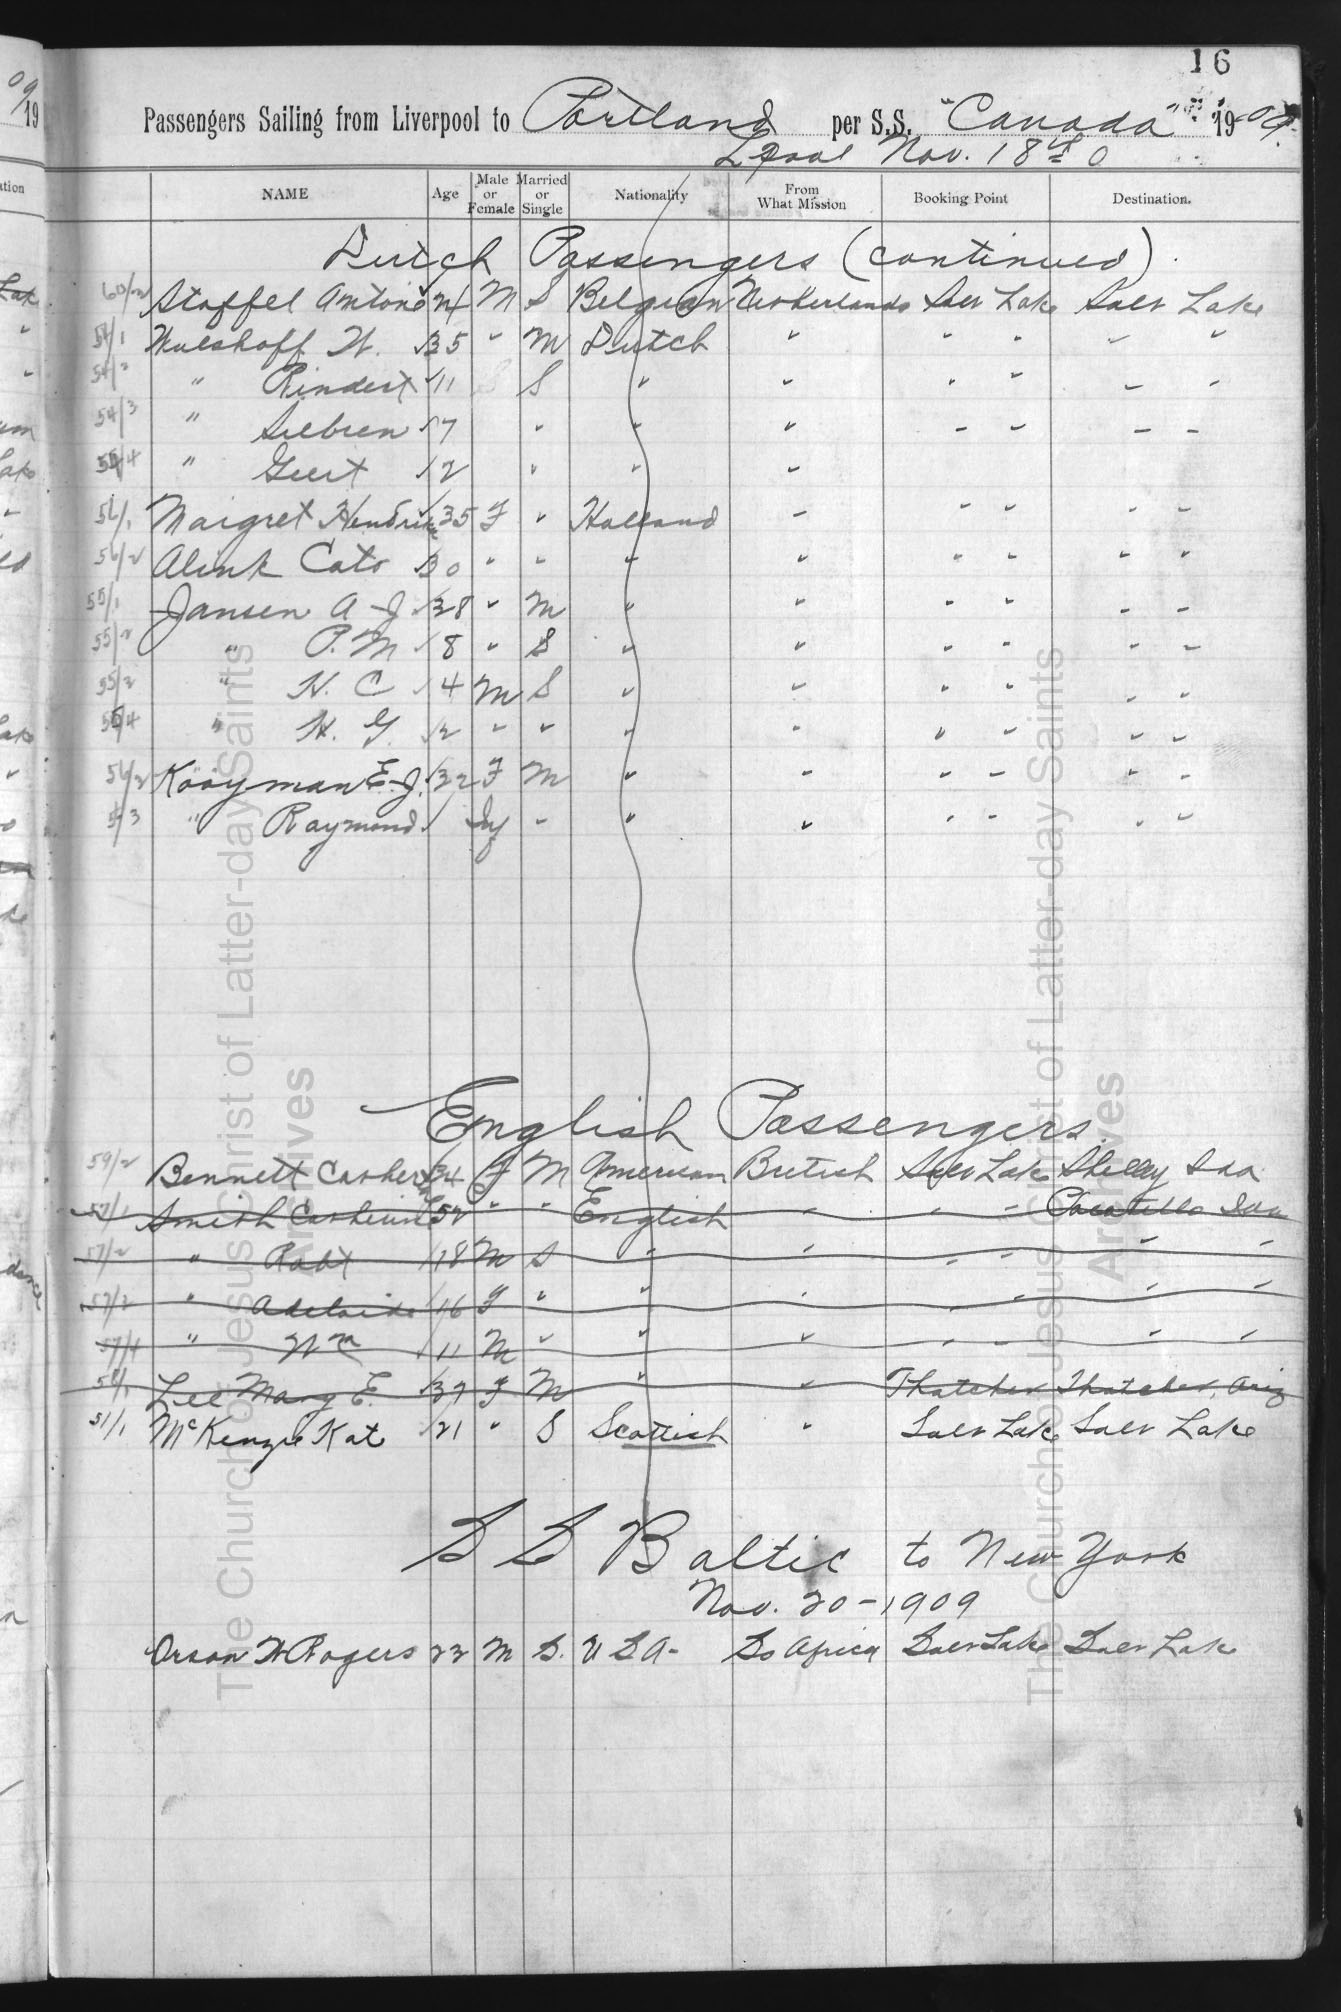 16
Passengers Sailing from Liverpool to Portland per S.S. "Canada" 1909
Lpool Nov. 18th 0
NAME Age Male or Female Married or Single Nationality From What Mission Booking Point Destination.
Dutch Passengers (continued)
Stoffel Antone 24 M S Belgian Netherlands Salt Lake Salt Lake
54/1 Mulshoff W. 35 " M Dutch " " " " "
54/2 " Rindert 11 S " " " " " "
54/3 " Siebren 7 " " " " " " "
" Geert 2 " " "
56/1 Margret Hendrike 35 F " Holland " " " " "
56/2 Alink Cato 30 " " " " " " " "
55/1 Jansen A J 38 " M " " " " " "
55/2 " P. M 8 " S " " " " " "
" H. C 4 M S " " " " " "
" H. G. 2 " " " " " " " "
56/2 Kooyman E. J. 32 F M " " " " " "
" Raymond Inf " " " " " " "
English Passengers
59/2 Bennett 34 F M American British Salt Lake Shelley Ida
57/1 Smith 52 " " English " " " Pocatello Ida
57/2 " Robt 18 M S " " " " " "
57/2 " Adelaide 16 F " " " " " " "
57/4 " Wm 11 M " " " " " " "
Lee Mary E. 37 F M " " Thatcher Thatcher, Ariz
51/1 McKenzie Kat 21 " S Scottish " Salt Lake Salt Lake
S S Baltic to New York
Nov. 20-1909
Orson W Rogers 22 M S. U S A- So Africa Salt Lake Salt Lake
The Church of Jesus Christ of Latter-day Saints
Archives
The Church of Jesus Christ of Latter-day Saints
Archives